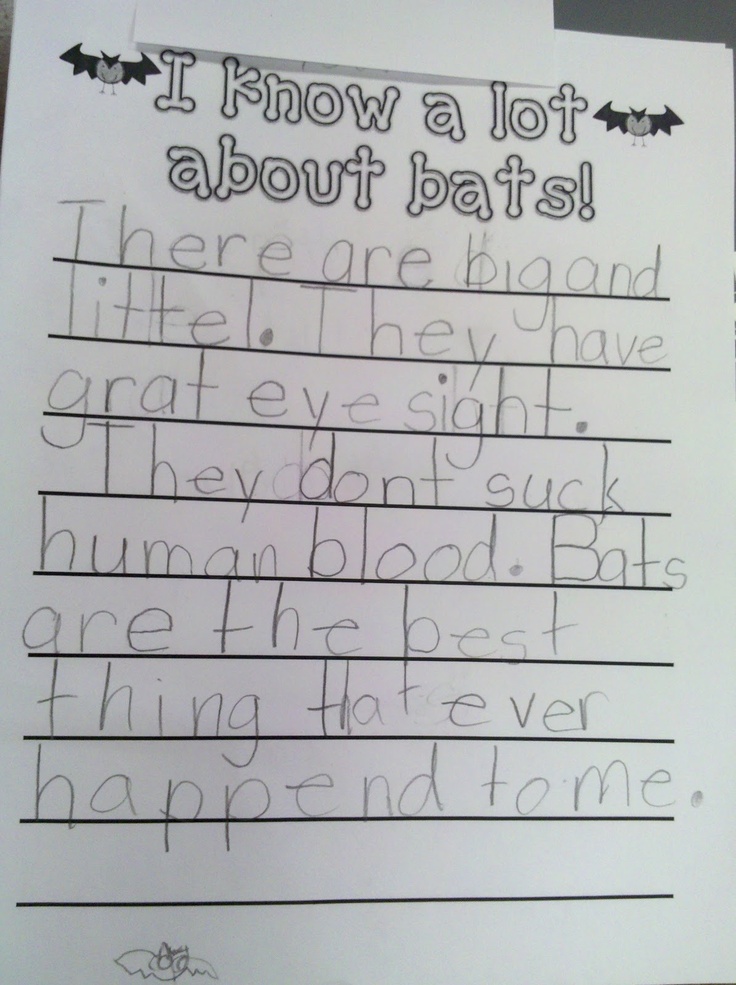 I know a lot
about bats!
There are big and
littel. They have
grat eye sight.
They dont suck
human blood. Bats
are the best
thing that ever
happend to me.